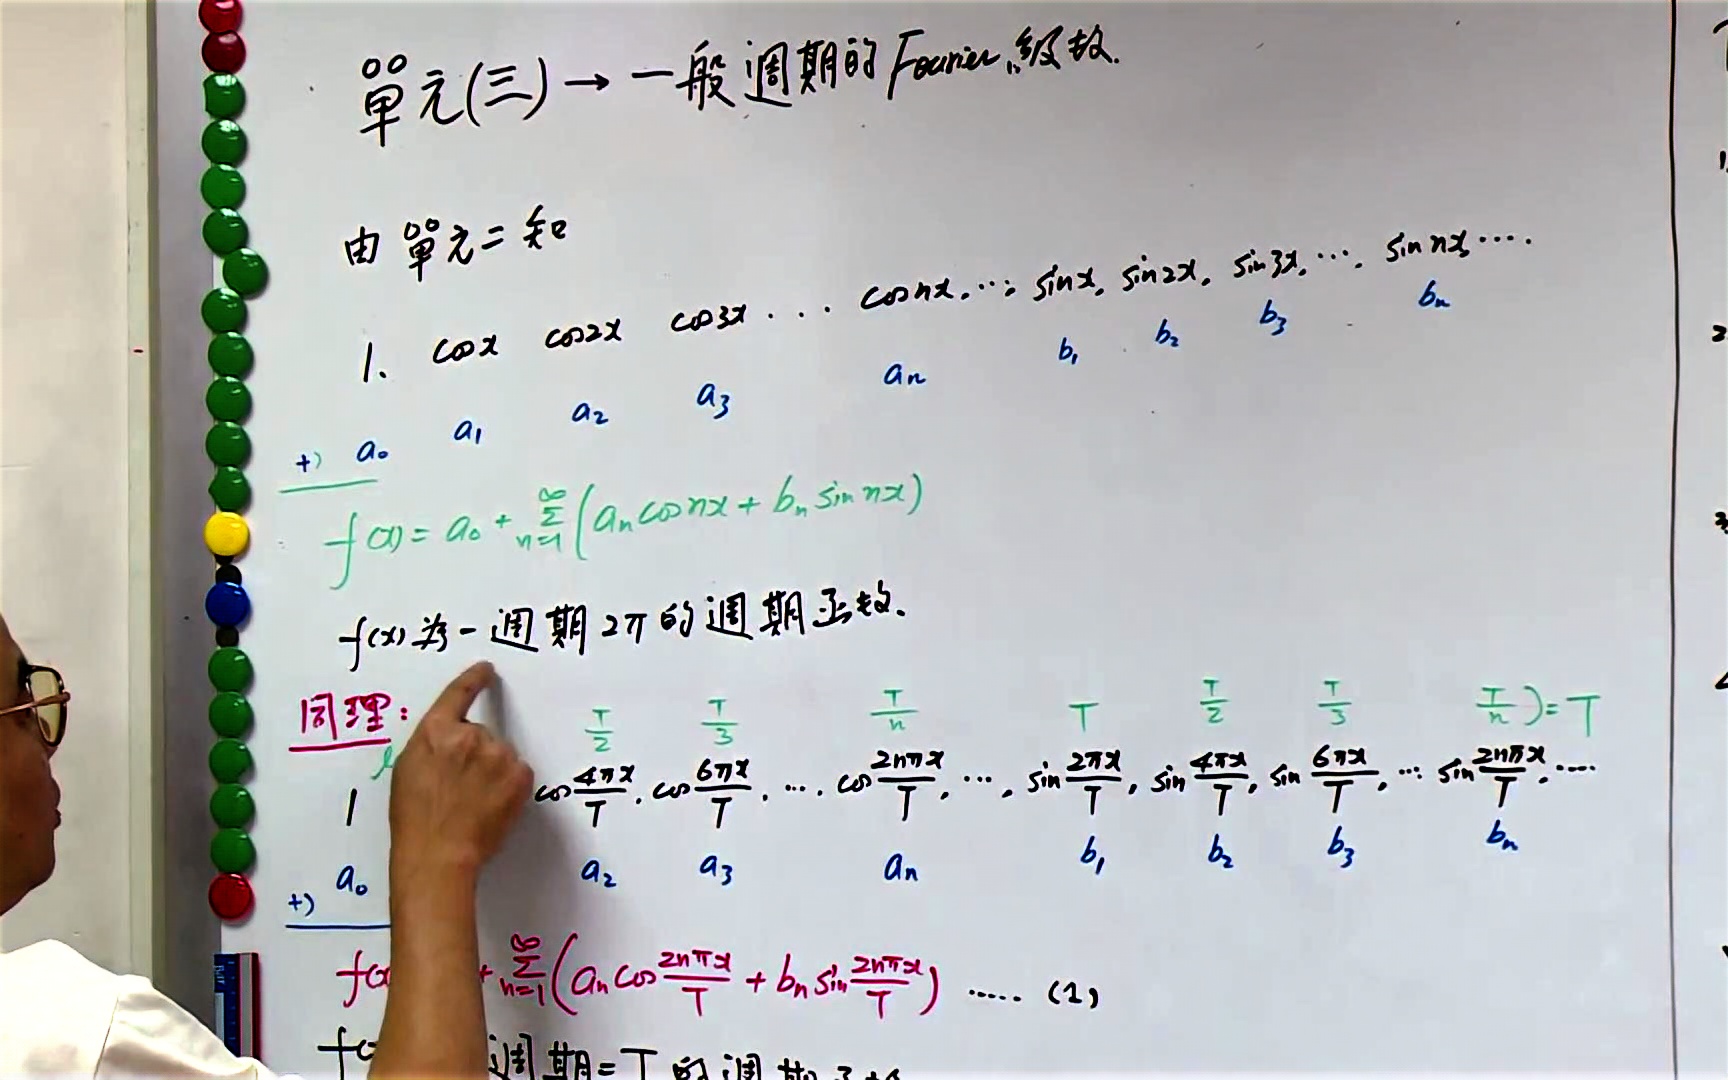 單元(三)→一般週期的Fourier級數.
由單元二知
1. cosx cos2x cos3x ... cosnx, ...; sinx, sin2x, sin3x, ..., sin nx, ....
+) a₀ a₁ a₂ a₃ aₙ b₁ b₂ b₃ bₙ
f(x) = a₀ + Σ_{n=1}^{∞} (aₙ cos nx + bₙ sin nx)
f(x)為一週期2π的週期函數.
同理:
T/2 T/3 T/n T T/2 T/3 T/n ) = T
1 cos 4πx/T, cos 6πx/T, ..., cos 2nπx/T, ..., sin 2πx/T, sin 4πx/T, sin 6πx/T, ...; sin 2nπx/T, ....
+) a₀ a₂ a₃ aₙ b₁ b₂ b₃ bₙ
f(x + Σ_{n=1}^{∞} (aₙ cos 2nπx/T + bₙ sin 2nπx/T) ..... (1)
週期=T的週期函數